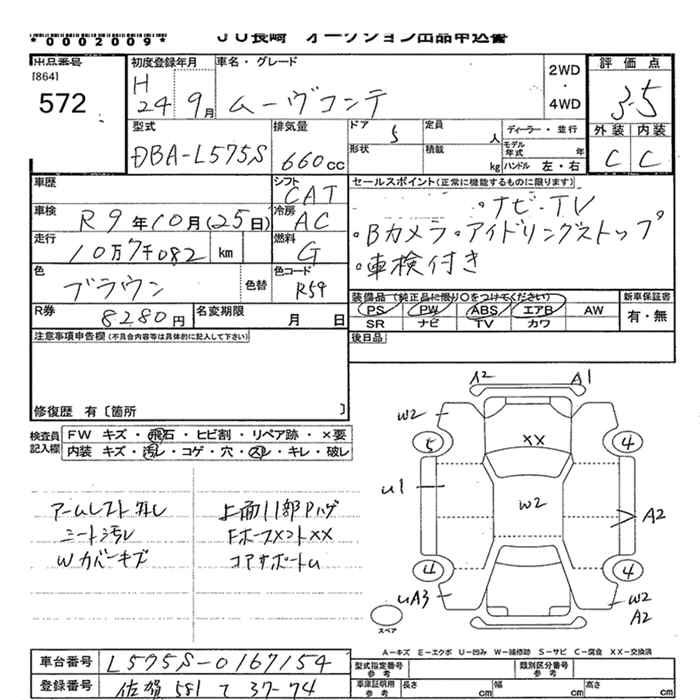 *0002009*
JU長崎 オークション出品申込書
出品番号
[864]
572
初度登録年月
H
24 9月
車名・グレード
ムーヴコンテ
2WD
・
4WD
評価点
3.5
外装 内装
C C
型式
DBA-L575S
排気量
660cc
ドア 5
定員 人
形状
積載 kg
ディーラー・並行
モデル年式 年
ハンドル 左・右
車歴
シフト CAT
車検 R9年10月(25日)
冷房 AC
走行 10万7千082 km
燃料 G
色 ブラウン 色替
色コード R59
R券 8280円
名変期限 月 日
セールスポイント(正常に機能するものに限ります)
・ナビ・TV
・Bカメラ・アイドリングストップ
・車検付き
装備品(純正品に限り○をつけてください)
新車保証書
PS PW ABS エアB AW
SR ナビ TV カワ
有・無
注意事項申告欄(不具合内容等は具体的に記入して下さい)
後日品
修復歴 有〔箇所 〕
検査員記入欄
FW キズ・飛石・ヒビ割・リペア跡・×要
内装 キズ・汚レ・コゲ・穴・スレ・キレ・破レ
アームレスト外レ
シート汚レ
Wカバーキズ
上前川部Pハゲ
FホースメントXX
コアサポートU
A2 A1
W2
XX
5 4
U1
W2
A2
4 4
UA3
W2
A2
スペア
A-キズ E-エクボ U-凹み W-補修跡 S-サビ C-腐食 XX-交換済
車台番号 L575S-0167154
登録番号 佐賀 581 て 37-74
型式指定番号 参考
類別区分番号 参考
車庫証明 参考
長さ cm
幅 cm
高さ cm